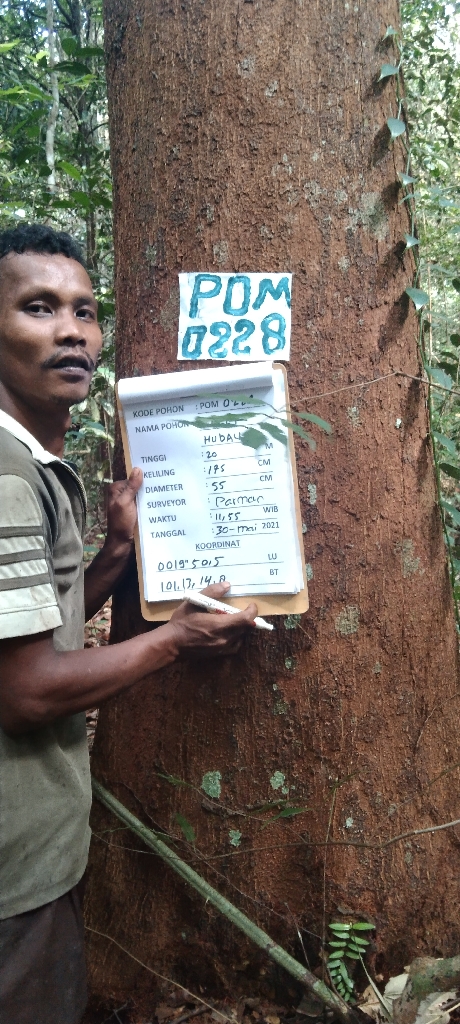 POM
0228
KODE POHON : POM
NAMA POHON
TINGGI : 20 M
KELILING : 175 CM
DIAMETER : 55 CM
SURVEYOR : Parman
WAKTU : 11,55 WIB
TANGGAL : 30-mai 2021
KOORDINAT
LU
BT